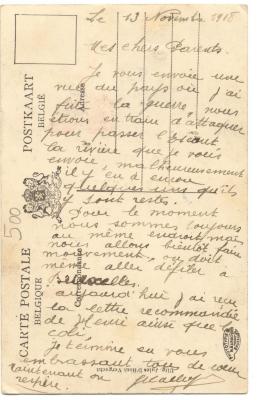 Le 13 Novembre 1918
Mes chers Parents.
Je vous envoie une
vue du pays où j'ai
fait la guerre nous
étions en train d'attaquer
pour passer l'Escaut
la rivière que je vous
envoie, malheureusement
il y en a encore
quelques uns qu'ils
y sont restés.
Pour le moment
nous sommes toujours
au même endroit mais
nous allons bientôt faire
mouvement, on doit
même aller défiler à
Bruxelles.
aujourd'hui j'ai reçu
la lettre recommandée
de ainsi que le
coli.
je termine en vous
embrassant tous de coeur
maintenant on
respire.
POSTKAART
BELGIË
Adresse
CARTE POSTALE
BELGIQUE
Correspondance
500